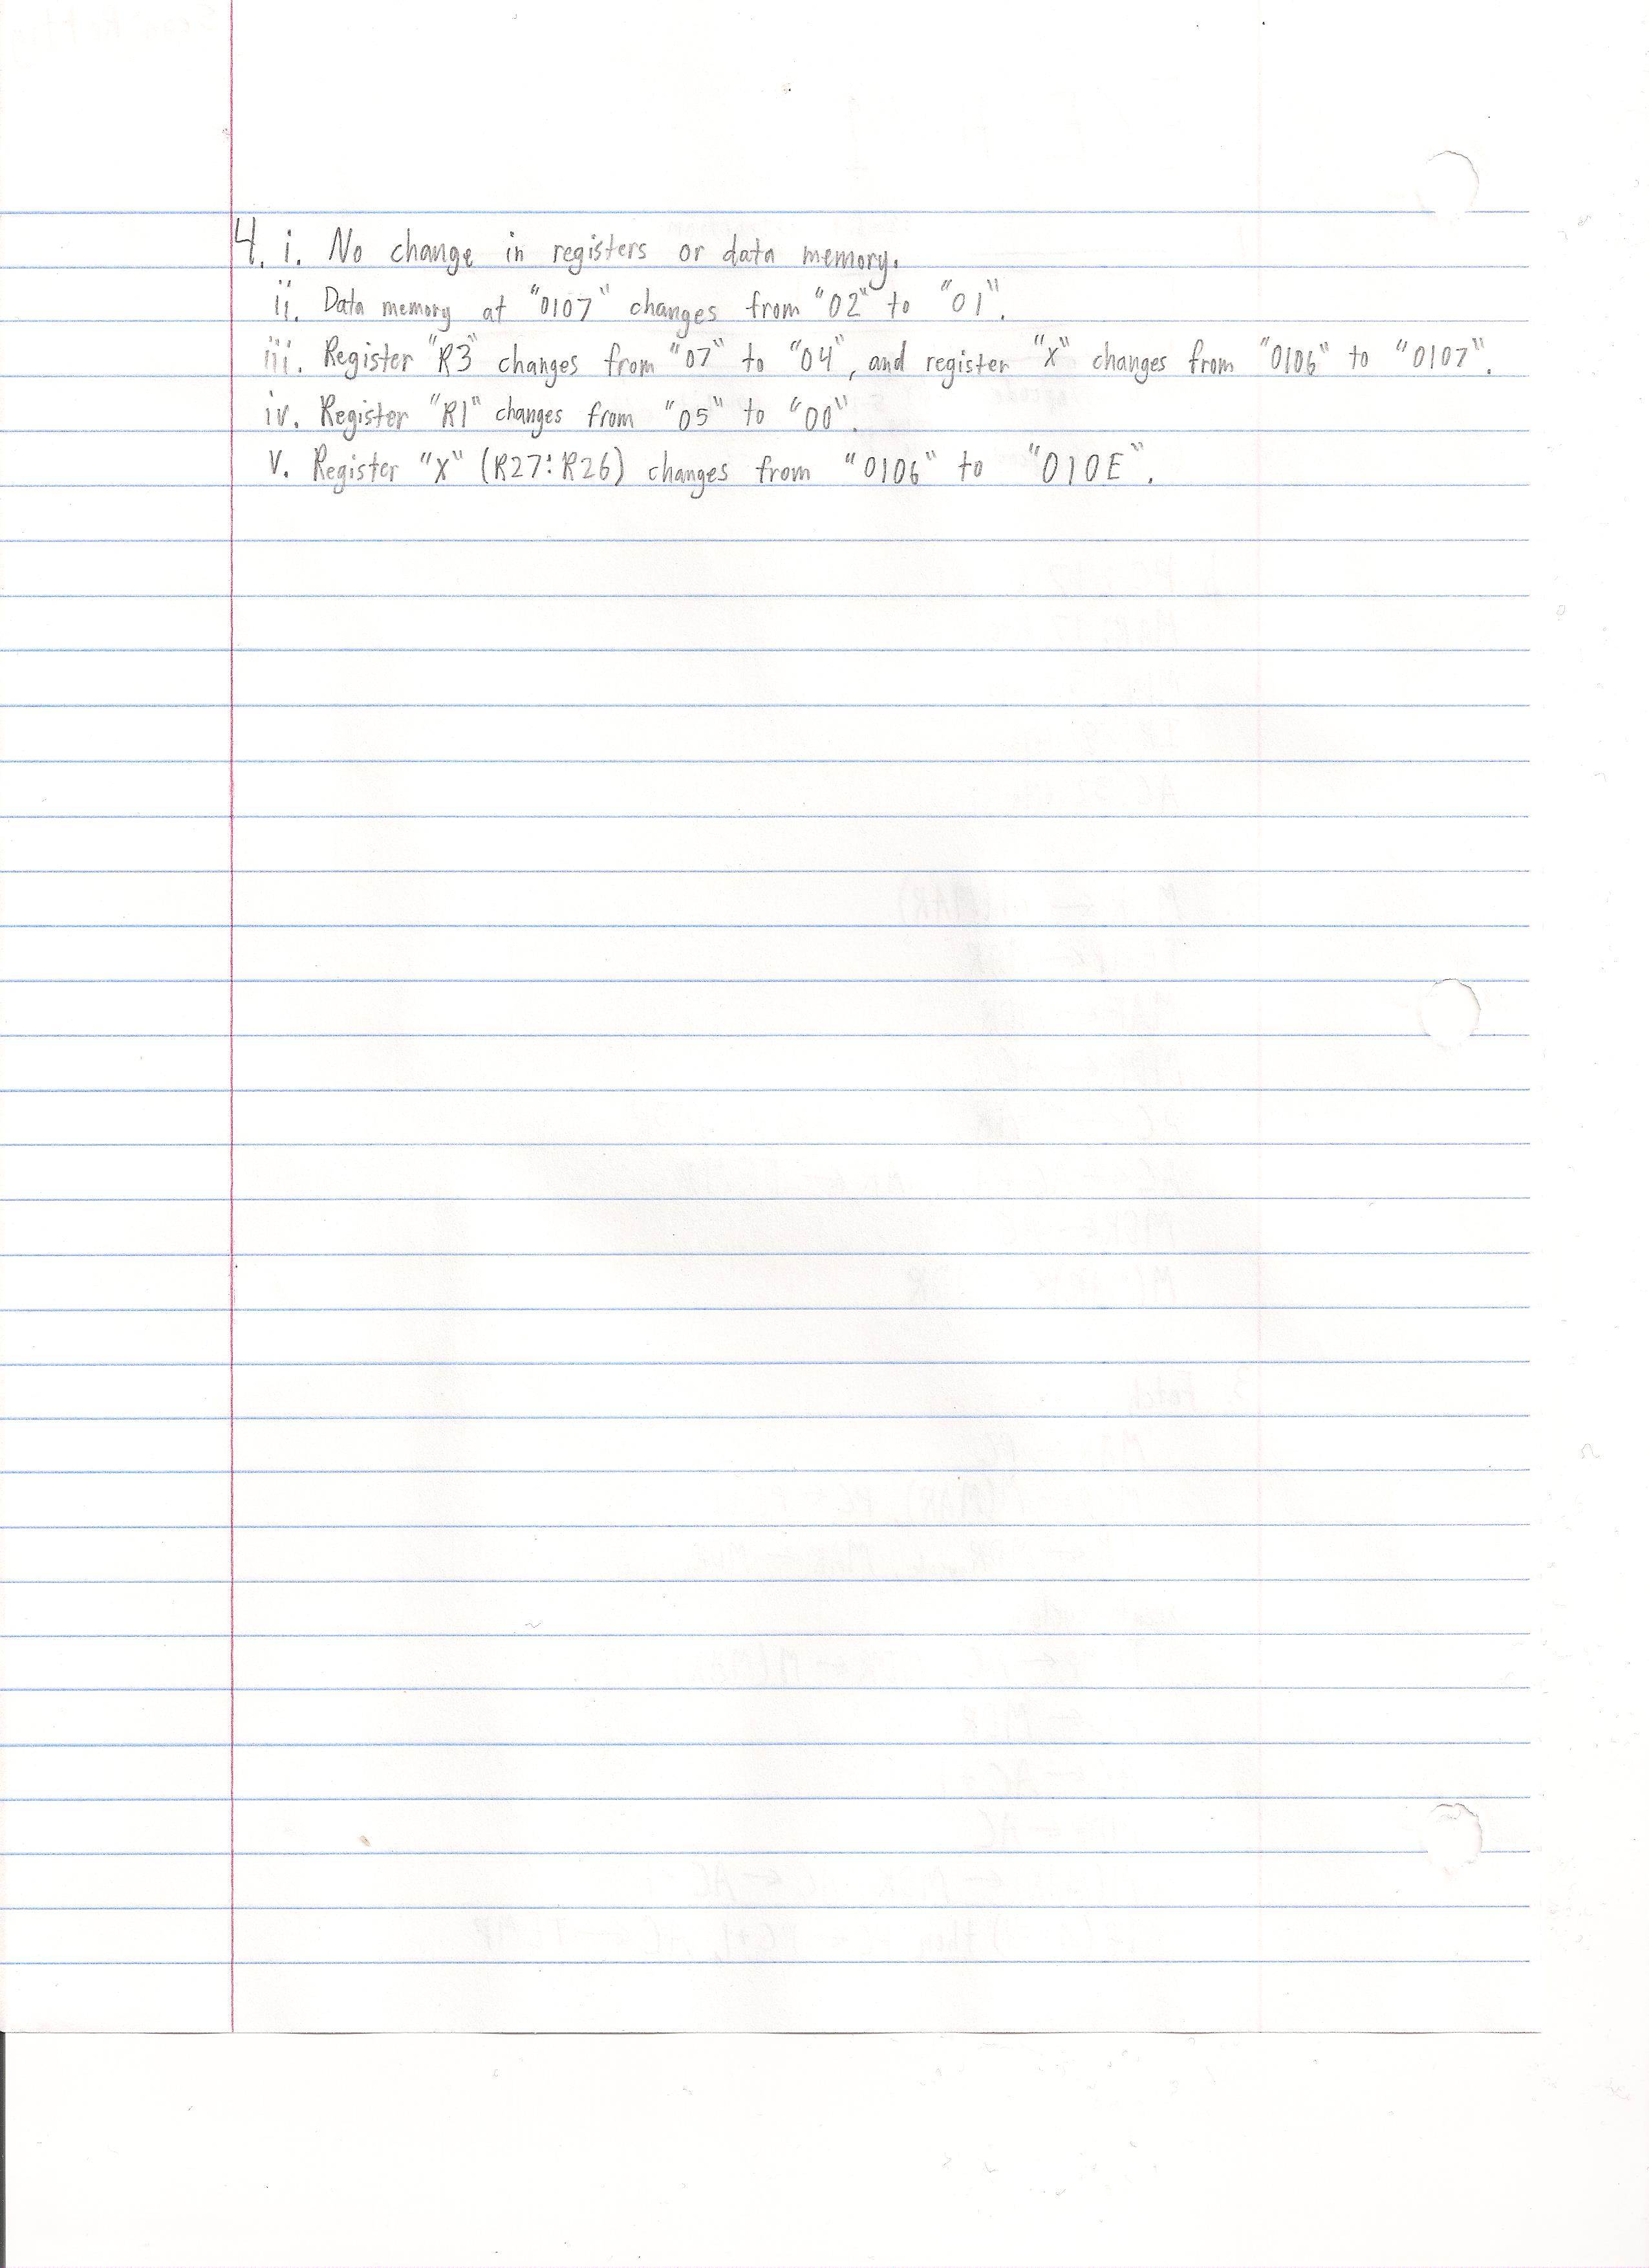 4. i. No change in registers or data memory.
ii. Data memory at "0107" changes from "02" to "01".
iii. Register "R3" changes from "07" to "04", and register "X" changes from "0106" to "0107".
iv. Register "R1" changes from "05" to "00".
v. Register "X" (R27:R26) changes from "0106" to "010E".